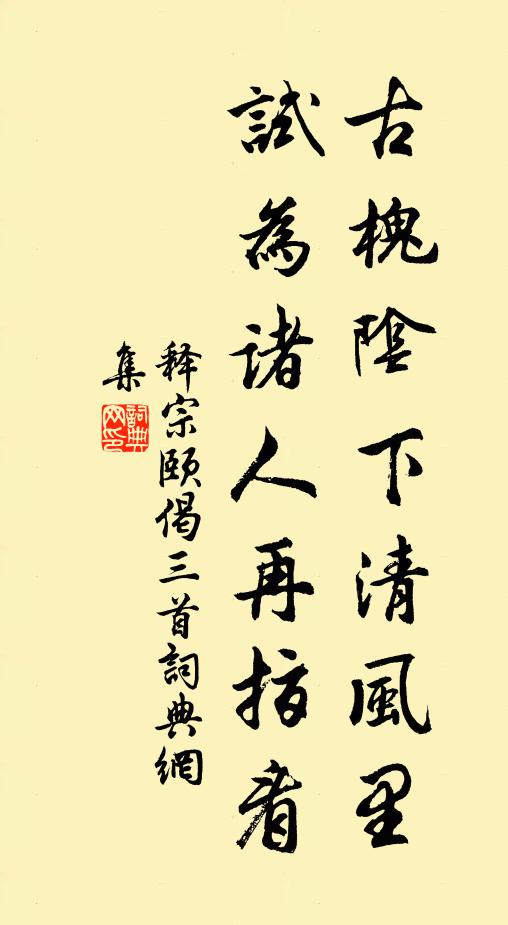 古槐陰下清風里
試為諸人再指看
釋宗頤偈三首詞典網
集
詞典
网印